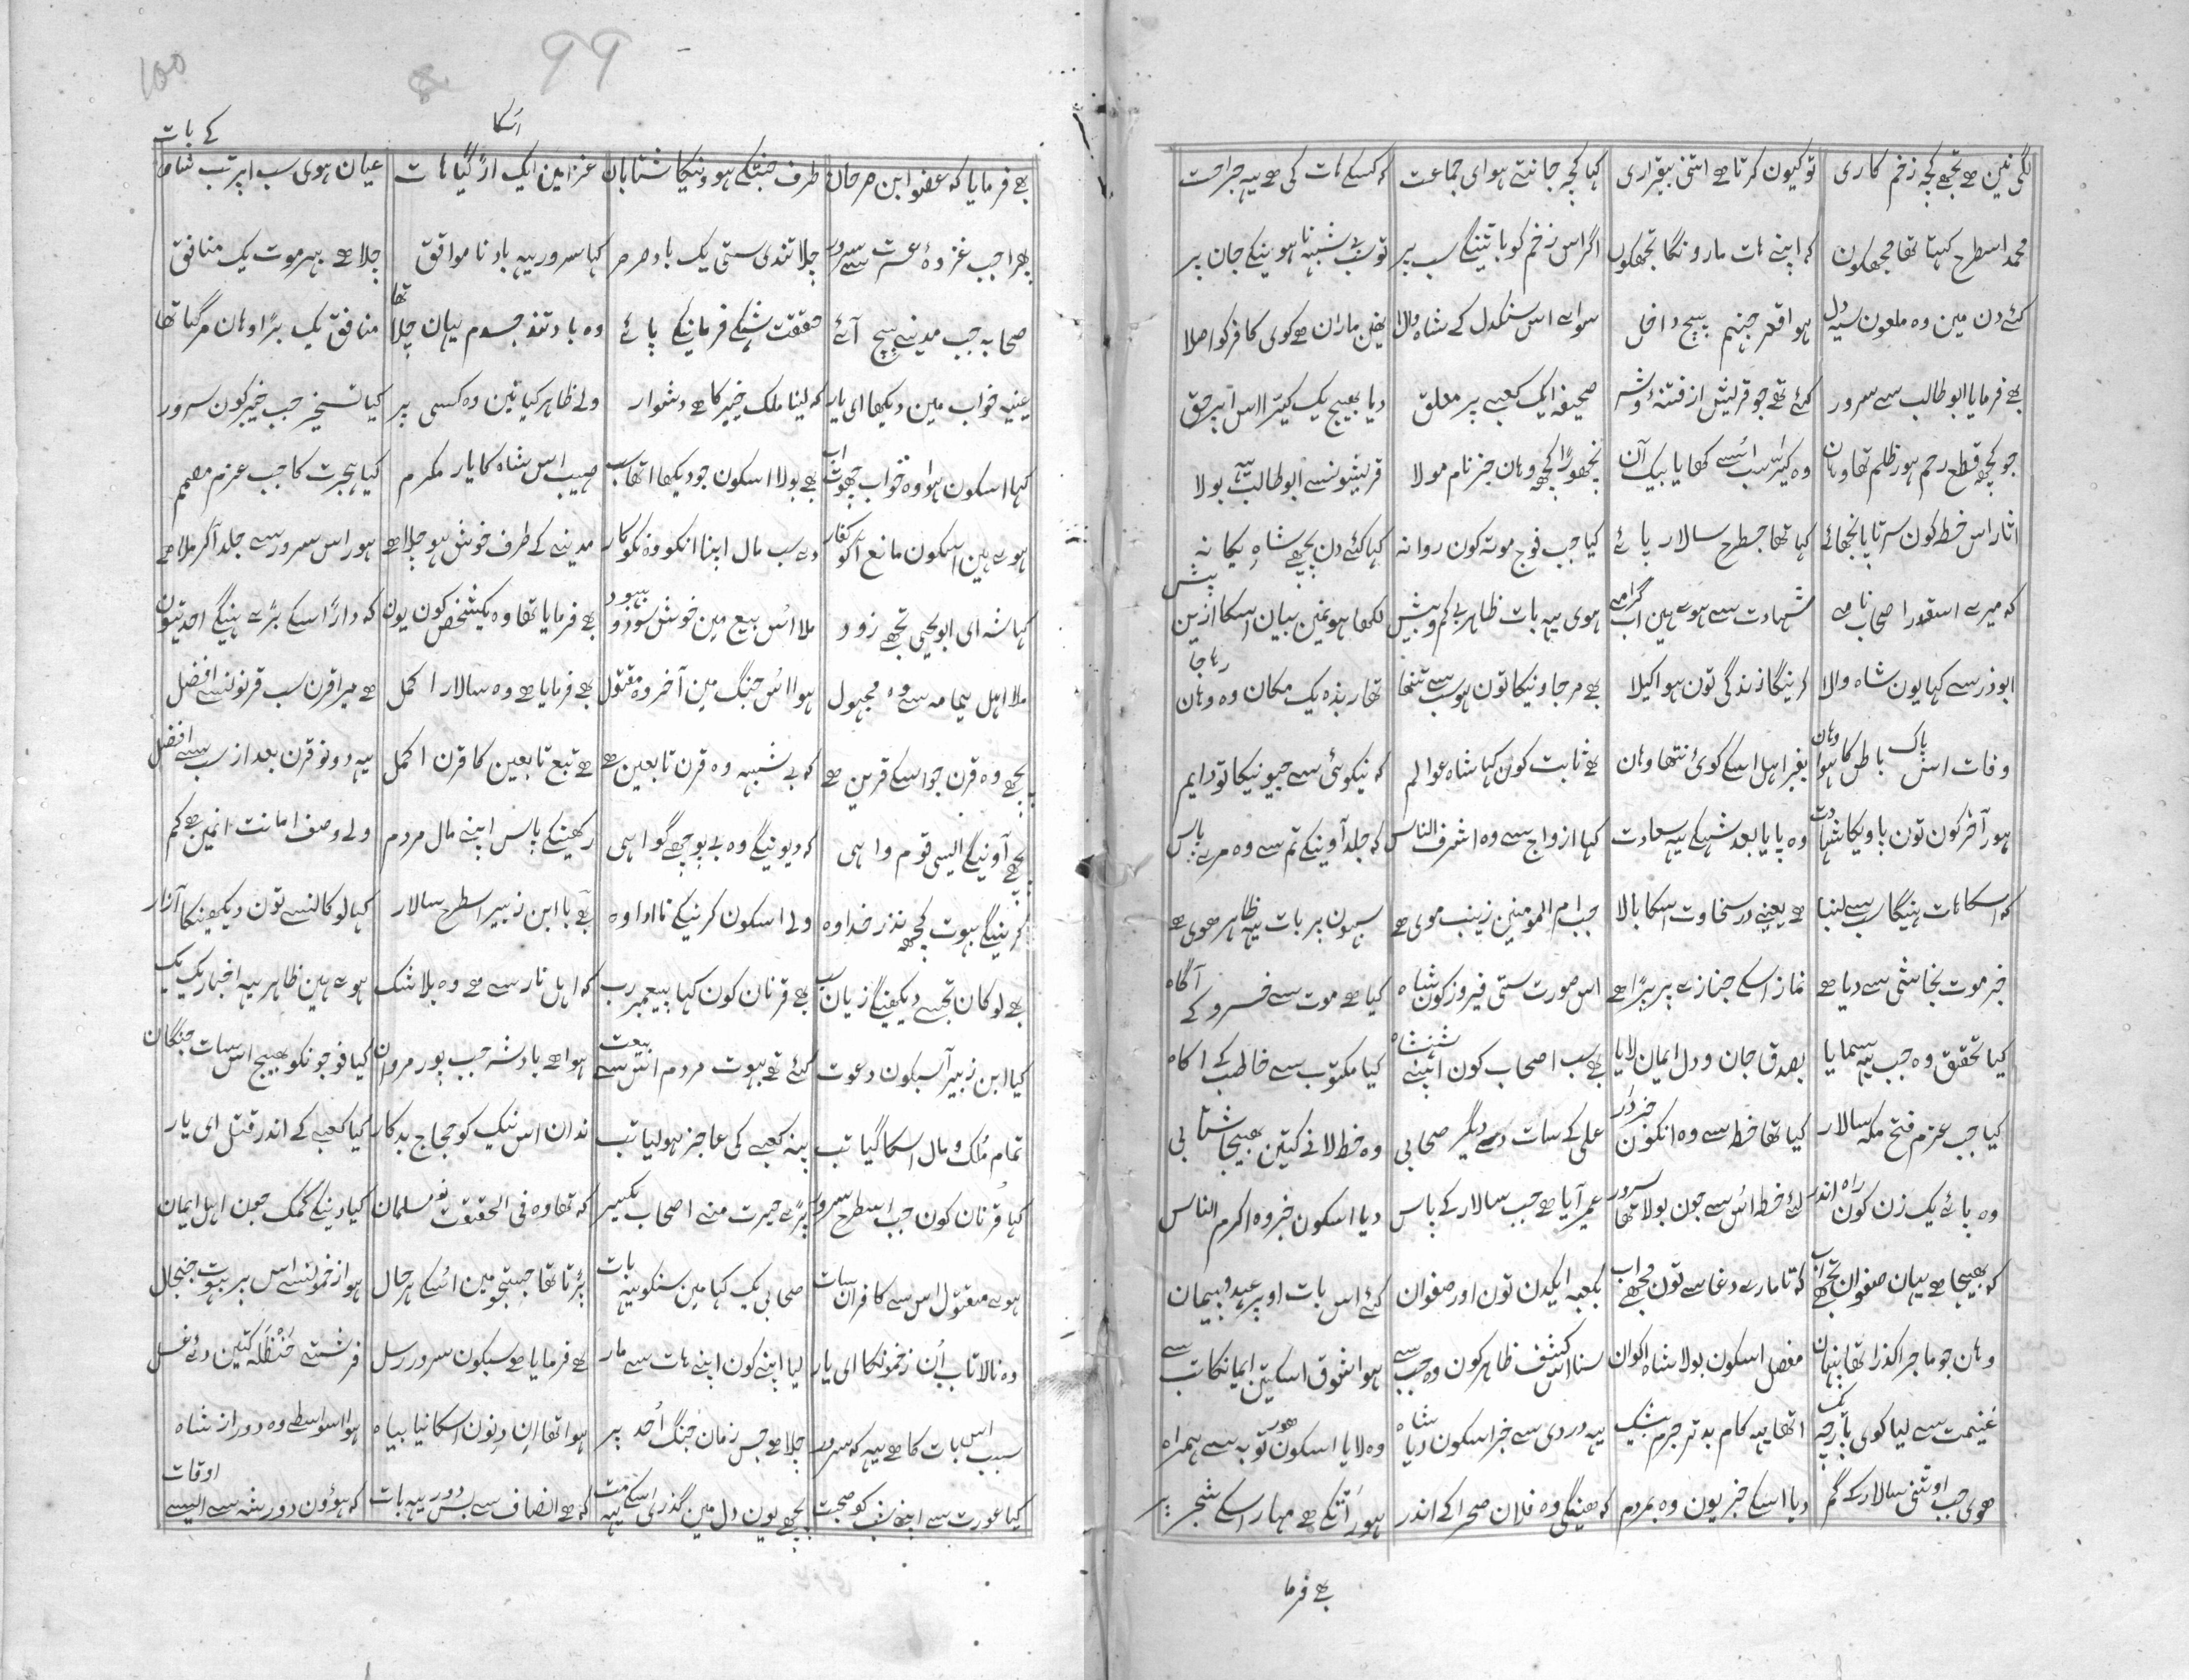 لگی نین ہے تجھے کچہ زخم کاری توکیون کرتا ہے اتنی بیقراری کہا کچہ جانتے ہو ای جماعت کہ کسکے ہات کی ہے یہہ جراحت
محمد اسطرح کہتا تھا مجھکون کہ اپنے ہات مارونگا تجھکون اگر اس زخم کو بانٹینگے سب پر تو بی شبہہ نا ہوینگے جان بر
کئے دن مین وہ ملعون سیہ دل ہوا قعر جہنم بیچ داخل سوا اس سنگدل کے شاہ والا نھین ماران ہے کوی کافر کو اصلا
بھے فرمایا ابوطالب سے سرور کئے تھے جو قریش از فتنہ و شر صحیفہ ایک کعبے پر معلق دیا بھیج یک کیڑا اس اپر حق
جو کچھ قطع رحم ہور ظلم تھا وہان وہ کیڑا سب اسے کھایا بیک آن نچھوڑا کچھ وہان جز نام مولا قریشونسے ابوطالب یہہ بولا
اثار اس خط کون سرتاپا نجھائے کہا تھا جسطرح سالار پائے کیا جب فوج موتہ کون روانہ کہا کئے دن پچھے شاہ یگانہ
کہ میرے اسقدر اصحاب نامے شہادت سے ہوے ہین اب گرامے ہوی یہہ بات ظاہر بی کم و بیش لکھا ہونمین بیان اسکا ازین پیش
ابوذر سے کہا یون شاہ والا کریگا زندگی تون ہو اکیلا بھے مرجاویگا تون ہو سب سے تنہا تھا ربذہ یک مکان وہ وہان رہا جا
وفات اس پاک باطن کا ہوا وہان بغیر اہل اسکے کوئی نتھا وہان بھے ثابت کون کہا شاہ عوالم کہ نیکوئی سے جیویگا تو دایم
ہور آخر کون تون پاویگا شہادت وہ پایا بعد شہ کے یہہ سعادت کہا ازواج سے وہ اشرف الناس کہ جلد آوینگے تم سے وہ مرے پاس
کہ اسکا ہات ہیگا سب سے لنبا ہے یعنے در سخاوت اسکا بالا جب ام المومنین زینب موی ہے سبھون پر بات یہہ ظاہر ھوی ہے
خبر موت نجاشی سے دیا ہے نماز اسکے جنازے پر پڑا ہے اس صورت ستی فیروز کون شاہ کیا ہے موت سے خسرو کے آگاہ
کیا تحقیق وہ جب یہہ سمایا بصدق جان و دل ایمان لایا بھے سب اصحاب کون اپنے شہنشاہ کیا مکتوب سے خاطب کے اکاہ
کیا جب عزم فتح مکہ سالار کیا تھا خط سے وہ انکون خبردار علی کے سات دے دیگر صحابی وہ خط لانے کتین بھیجا شتابی
وہ پائے یک زن کون راہ اندر لئے خط اس سے جون بولا تھا سرور عمیر آیا ہے جب سالار کے پاس دیا اسکون خبر وہ اکرم الناس
کہ بھیجا ہے یہان صفوان تجھے اب کہ تا مارے دغا سے تون مجھے اب بکعبہ ایکدن تون اور صفوان کئے اس بات اوپر عہد و پیمان
وہان جو ماجرا گذرا تھا پنہان مفصل اسکون بولا شاہ اکوان سنا اس کشف ظاہر کون وہ جب سے ہوا شوق اسکتین ایمانکا تب سے
غنیمت سے لیا کوی پارچہ یک اتھا یہہ کام بدتر جرم بیشک یہہ دردی سے خبر اسکون دیا شاہ وہ لایا اسکون ھور توبہ سے ہمراہ
ھوی جب اونٹنی سالار کے گم دیا اسکے خبر یون وہ بمردم کہ ھیگی وہ فلان صحرا کے اندر ہور اٹکے ہے مہار اسکے شجر پر
بھے فرما
99
100
بھے فرمایا کہ عضو ابن صرحان طرف جنتکے ہوونیکا شتابان غزا مین ایک اڑ گیا ہات اسکا عیان ہوی سب اپر تب شاہ کے بات
پھرا جب غزوۂ عسرت سے سرور چلا تندی ستی یک باد صرصر کہا سرور یہہ باد نا موافق چلا ہے بہر موت یک منافق
صحابہ جب مدینے بیچ آئے حقیقت شہ کے فرمانیکے پائے وہ باد تند جسدم یہان چلا تھا منافق یک بڑا وہان مر گیا تھا
عینیہ خواب مین دیکھا ای یار کہ لینا ملک خیبر کا ہے دشوار ولے ظاہر کیا نین وہ کسی پر کیا تسخیر جب خیبر کون سرور
کہا اسکون ہوا وہ خواب جھوٹ اب بھے بولا اسکون جو دیکھا اتھا سب صہیب اس شاہ کا یار مکرم کیا ہجرت کا جب عزم مصمم
ہوے ہین اسکون مانع آکو کفار دے سب مال اپنا انکو وہ نکوکار مدینے کے طرف خوش ہو چلا ہے ہور اس سرور سے جلد آکر ملا ہے
کہا شہ ای ابویحیی تجھے زود ملا اس بیع مین خوش سود و بہبود بھے فرمایا تھا وہ یکشخص کون یون کہ داڑ اسکے بڑے ہینگے احد تیون
ملا اہل یمامہ سے وہ مجہول ہوا اس جنگ مین آخر وہ مقتول بھے فرمایا ہے وہ سالار اکمل ہے میرا قرن سب قرنونسے افضل
پچھے وہ قرن جو اسکے قرین ہے کہ بی شبہہ وہ قرن تابعین ہے ہے تبع تابعین کا قرن اکمل یہہ دونو قرن بعد از سب سے افضل
پچھے آوینگے ایسی قوم واہی کہ دیونیگے وہ بے پوچھے گواہی رکھینگے پاس اپنے مال مردم ولے وصف امانت انمین ہے کم
کرینگے بہوت کچھ نذر خدا وہ ولے اسکون کرینگے نا ادا وہ بھے با ابن زبیر اسطرح سالار کہا لوکانسے تون دیکھیگا آزار
بھے لوکان تجسے دیکھینگے زیان سب بھے قزنان کون کہا پیغمبر رب کہ اہل نار سے ہے وہ بلا شک ہوے ہین ظاہر یہہ اخبار یک یک
کیا ابن زبیر آسبکون دعوت کئے تھے بہوت مردم اس سے بیعت ہوا ہے بادشہ جب پور مروان کیا فوجونکو بھیج اس سات جنگان
تمام ملک و مال اسکا گیا تب پنہ کعبے کی عاجز ہو لیا تب ندان اس نیک کو حجاج بدکار کیا کعبے کے اندر قتل ای یار
کہا قزنان کون جب اسطرح سرور پڑے حیرت منے اصحاب یکسر کہ تھا وہ فی الحقیقت نو مسلمان کیا دینکے کمک جون اہل ایمان
ہوے مقتول اس سے کافران سات صحابی یک کہا مین سنکو یہہ بات پڑتا تھا جستجو مین اسکے ہر حال ہوا زخمونسے اس پر بہوت جنجال
وہ نالا تاب ان زخمونکا ای یار لیا اپنے کون اپنے ہات سے مار بھے فرمایا ہے سبکون سرور رسل فرشتے حنظلہ کتین دئے غسل
سبب اس بات کا ہے یہہ کہ سرور چلا ہے جس زمان جنگ احد پر ہوا تھا ان دنون اسکا نیا بیاہ ہوا اسواسطے وہ دور از شاہ
کیا عورت سے اپنے شب کو صحبت پچھے یون دل مین گذری اسکے یہہ مت کہ ہے انصاف سے بس دور یہہ بات کہ ہوؤن دور شہ سے ایسے اوقات